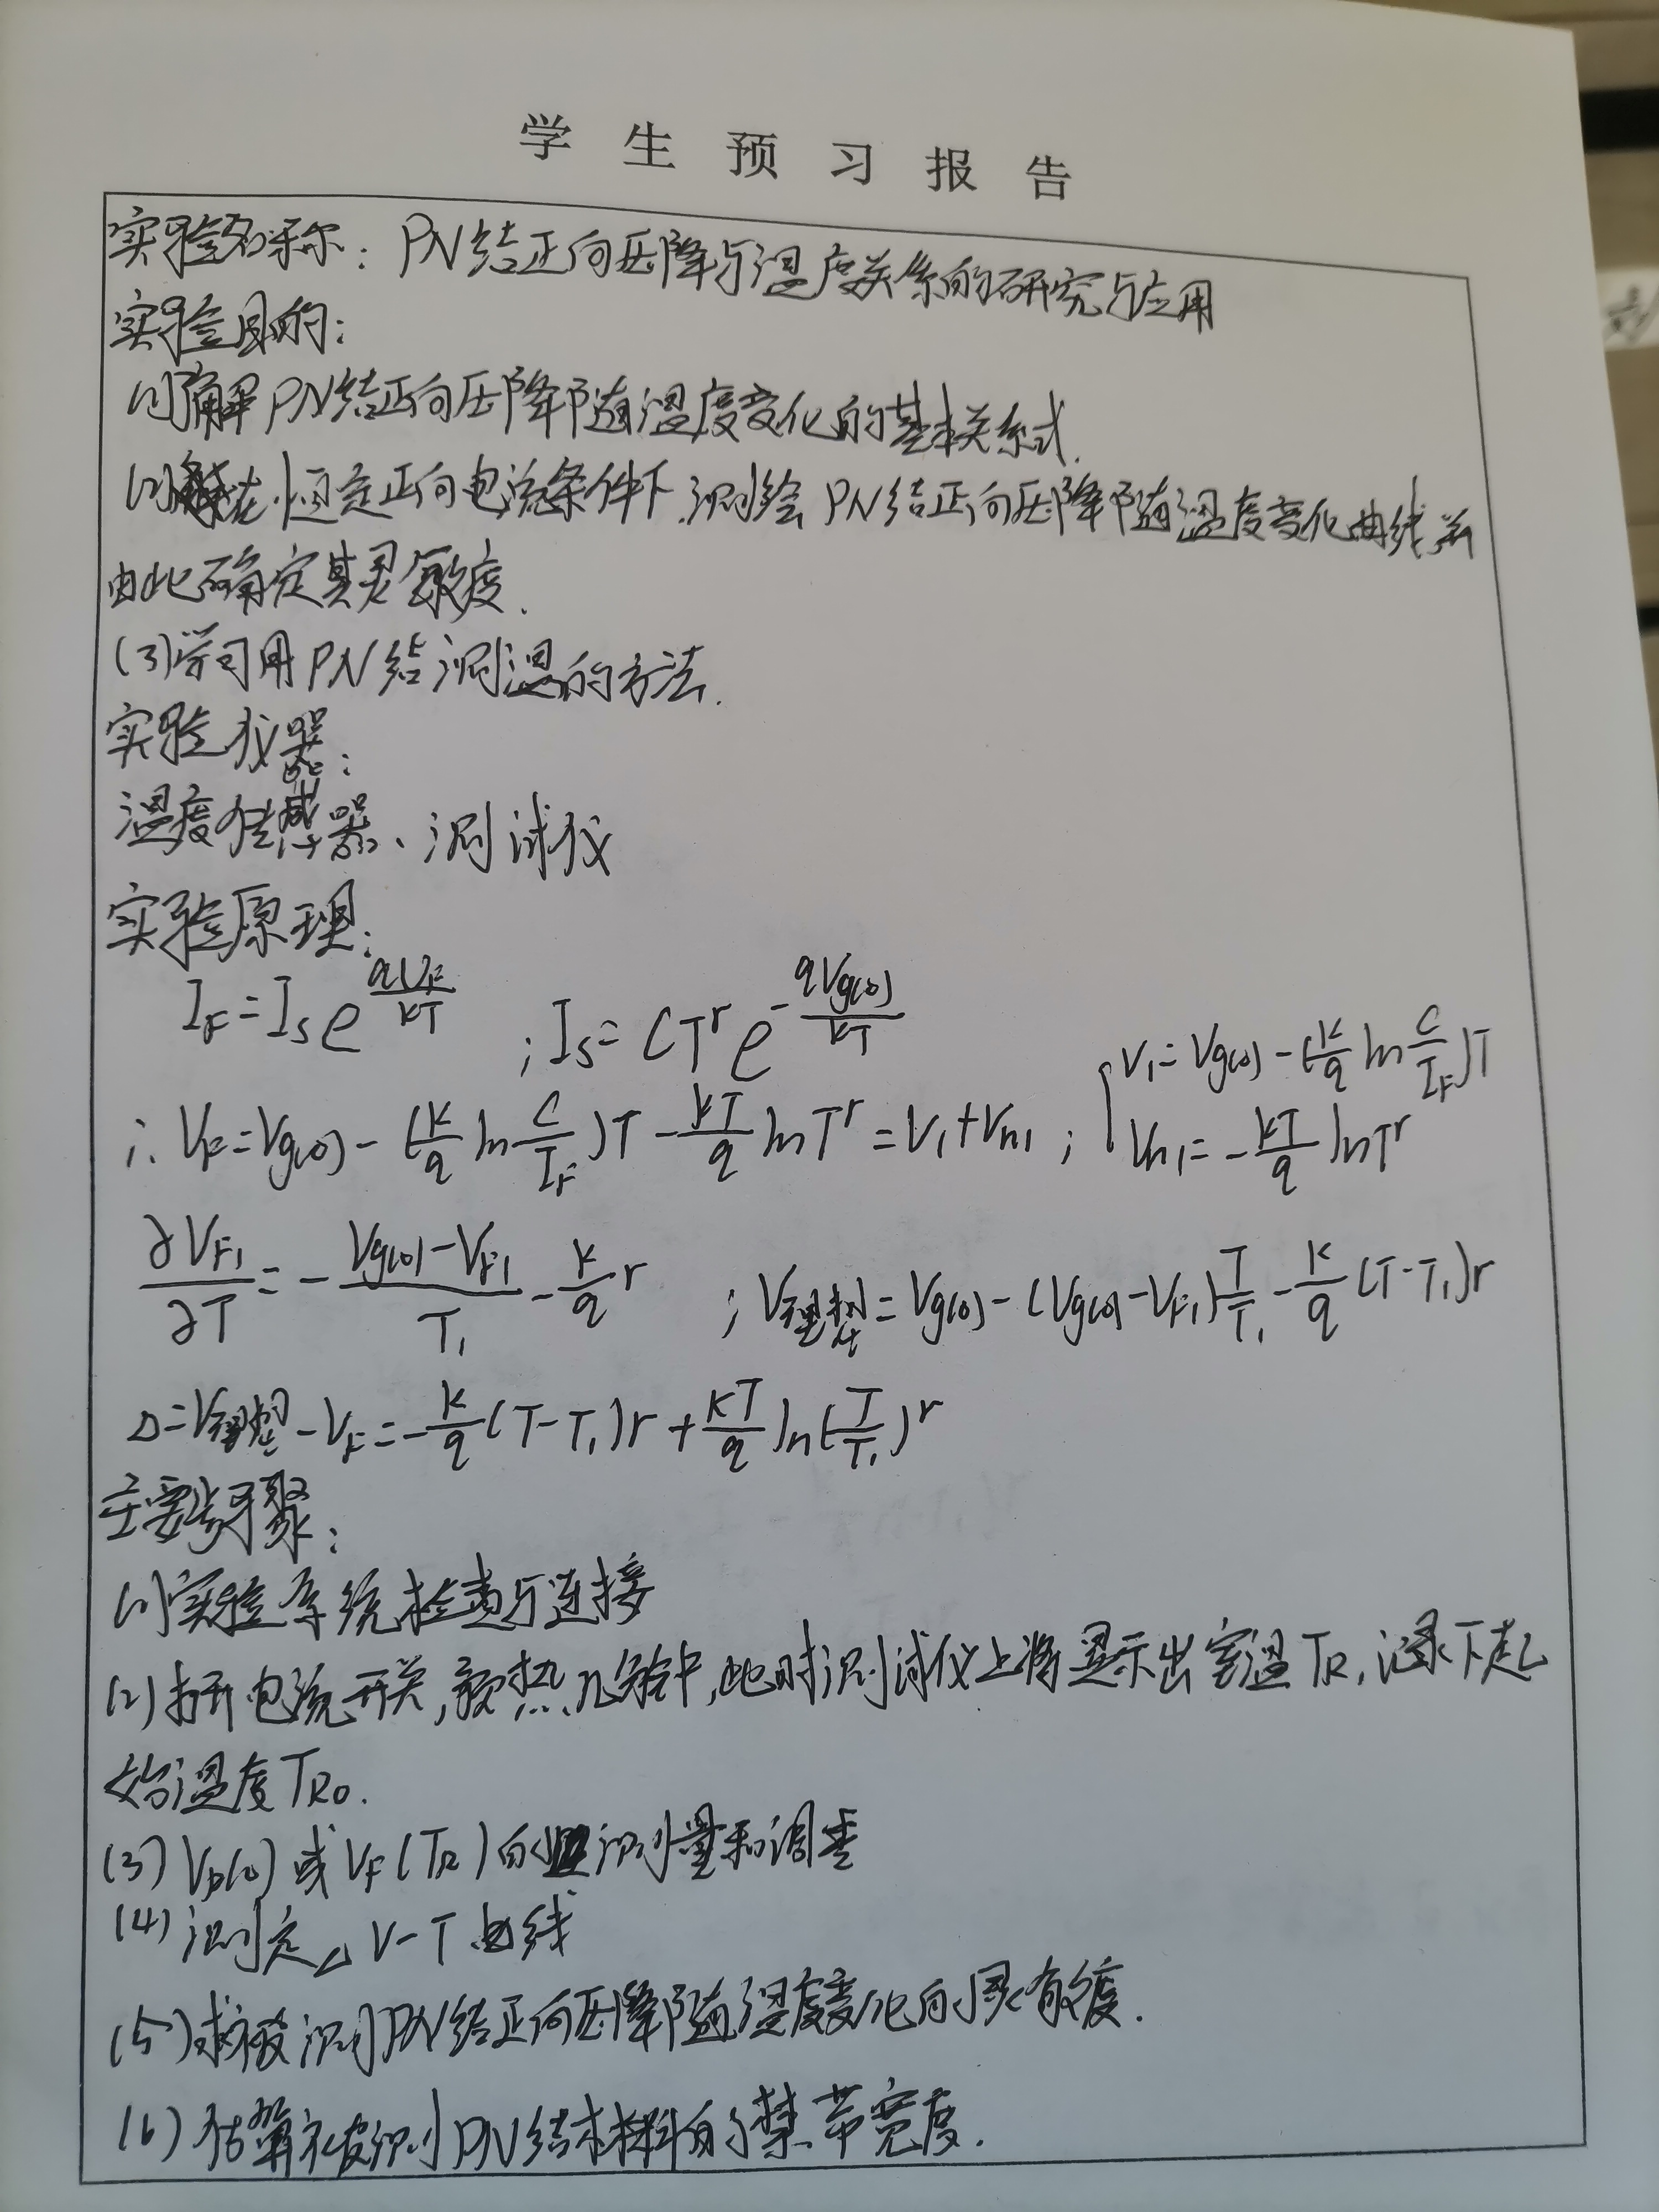 学生预习报告
实验名称：PN结正向压降与温度关系的研究与应用
实验目的：
(1)了解PN结正向压降随温度变化的基本关系式.
(2)在恒定正向电流条件下,测绘PN结正向压降随温度变化曲线并
由此确定其灵敏度.
(3)学习用PN结测温的方法.
实验仪器：
温度传感器、测试仪
实验原理：
I_F=I_S e^{qV_F/kT} ; I_S=CT^r e^{-qVg(0)/kT}
∴V_F=Vg(0)-(k/q ln C/I_F)T-kT/q lnT^r=V_1+V_{n1} ; { V_1=Vg(0)-(k/q ln C/I_F)T
V_{n1}=-kT/q lnT^r
∂V_{F1}/∂T=-(Vg(0)-V_{F1})/T_1-k/q r ; V理想=Vg(0)-(Vg(0)-V_{F1})T/T_1-k/q(T-T_1)r
Δ=V理想-V_F=-k/q(T-T_1)r+kT/q ln(T/T_1)^r
主要步骤：
(1)实验系统检查与连接
(2)打开电流开关,预热几分钟,此时测试仪上将显示出室温T_R,记录下起
始温度T_{R0}.
(3)V_F(0)或V_F(T_R)的测量和调零
(4)测定ΔV-T曲线
(5)求被测PN结正向压降随温度变化的灵敏度.
(6)估算被测PN结材料的禁带宽度.